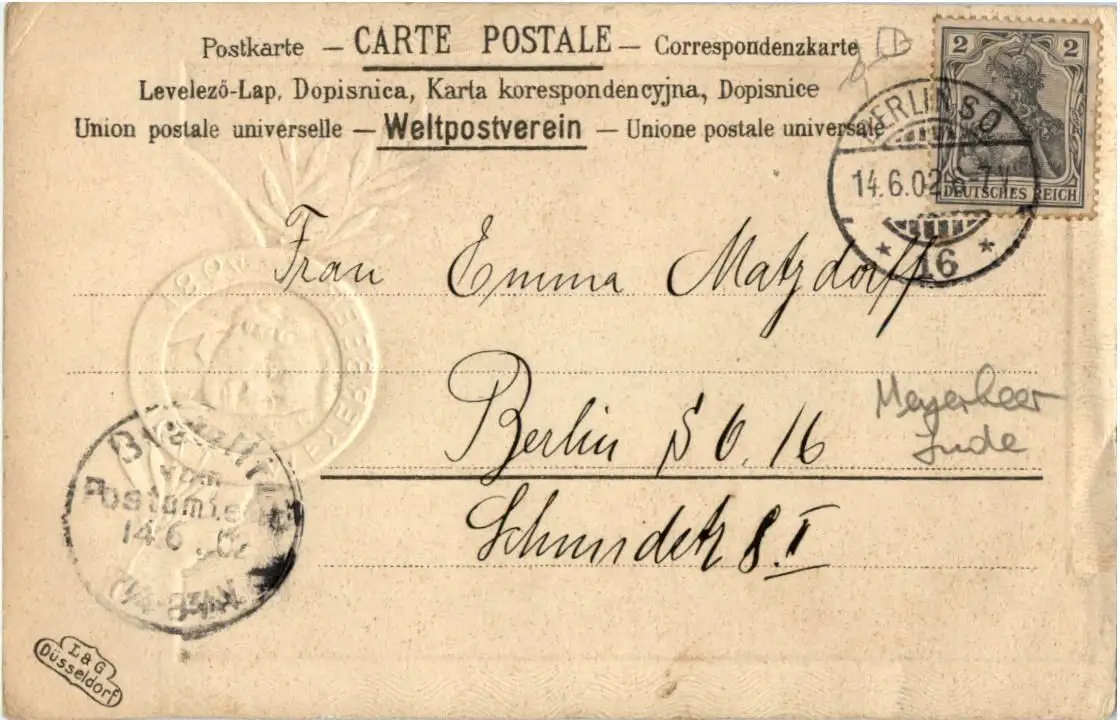 Postkarte — CARTE POSTALE — Correspondenzkarte
Levelező-Lap, Dopisnica, Karta korespondencyjna, Dopisnice
Union postale universelle — Weltpostverein — Unione postale universale
2 2
DEUTSCHES REICH
BERLIN S O
14.6.02
* 16 *
Frau Emma Matzdorff
Berlin S O. 16
Meyerbeer
Jude
Schmidstr 8 I
Bestellt
vom
Postamte
14.6.02
L & G
Düsseldorf